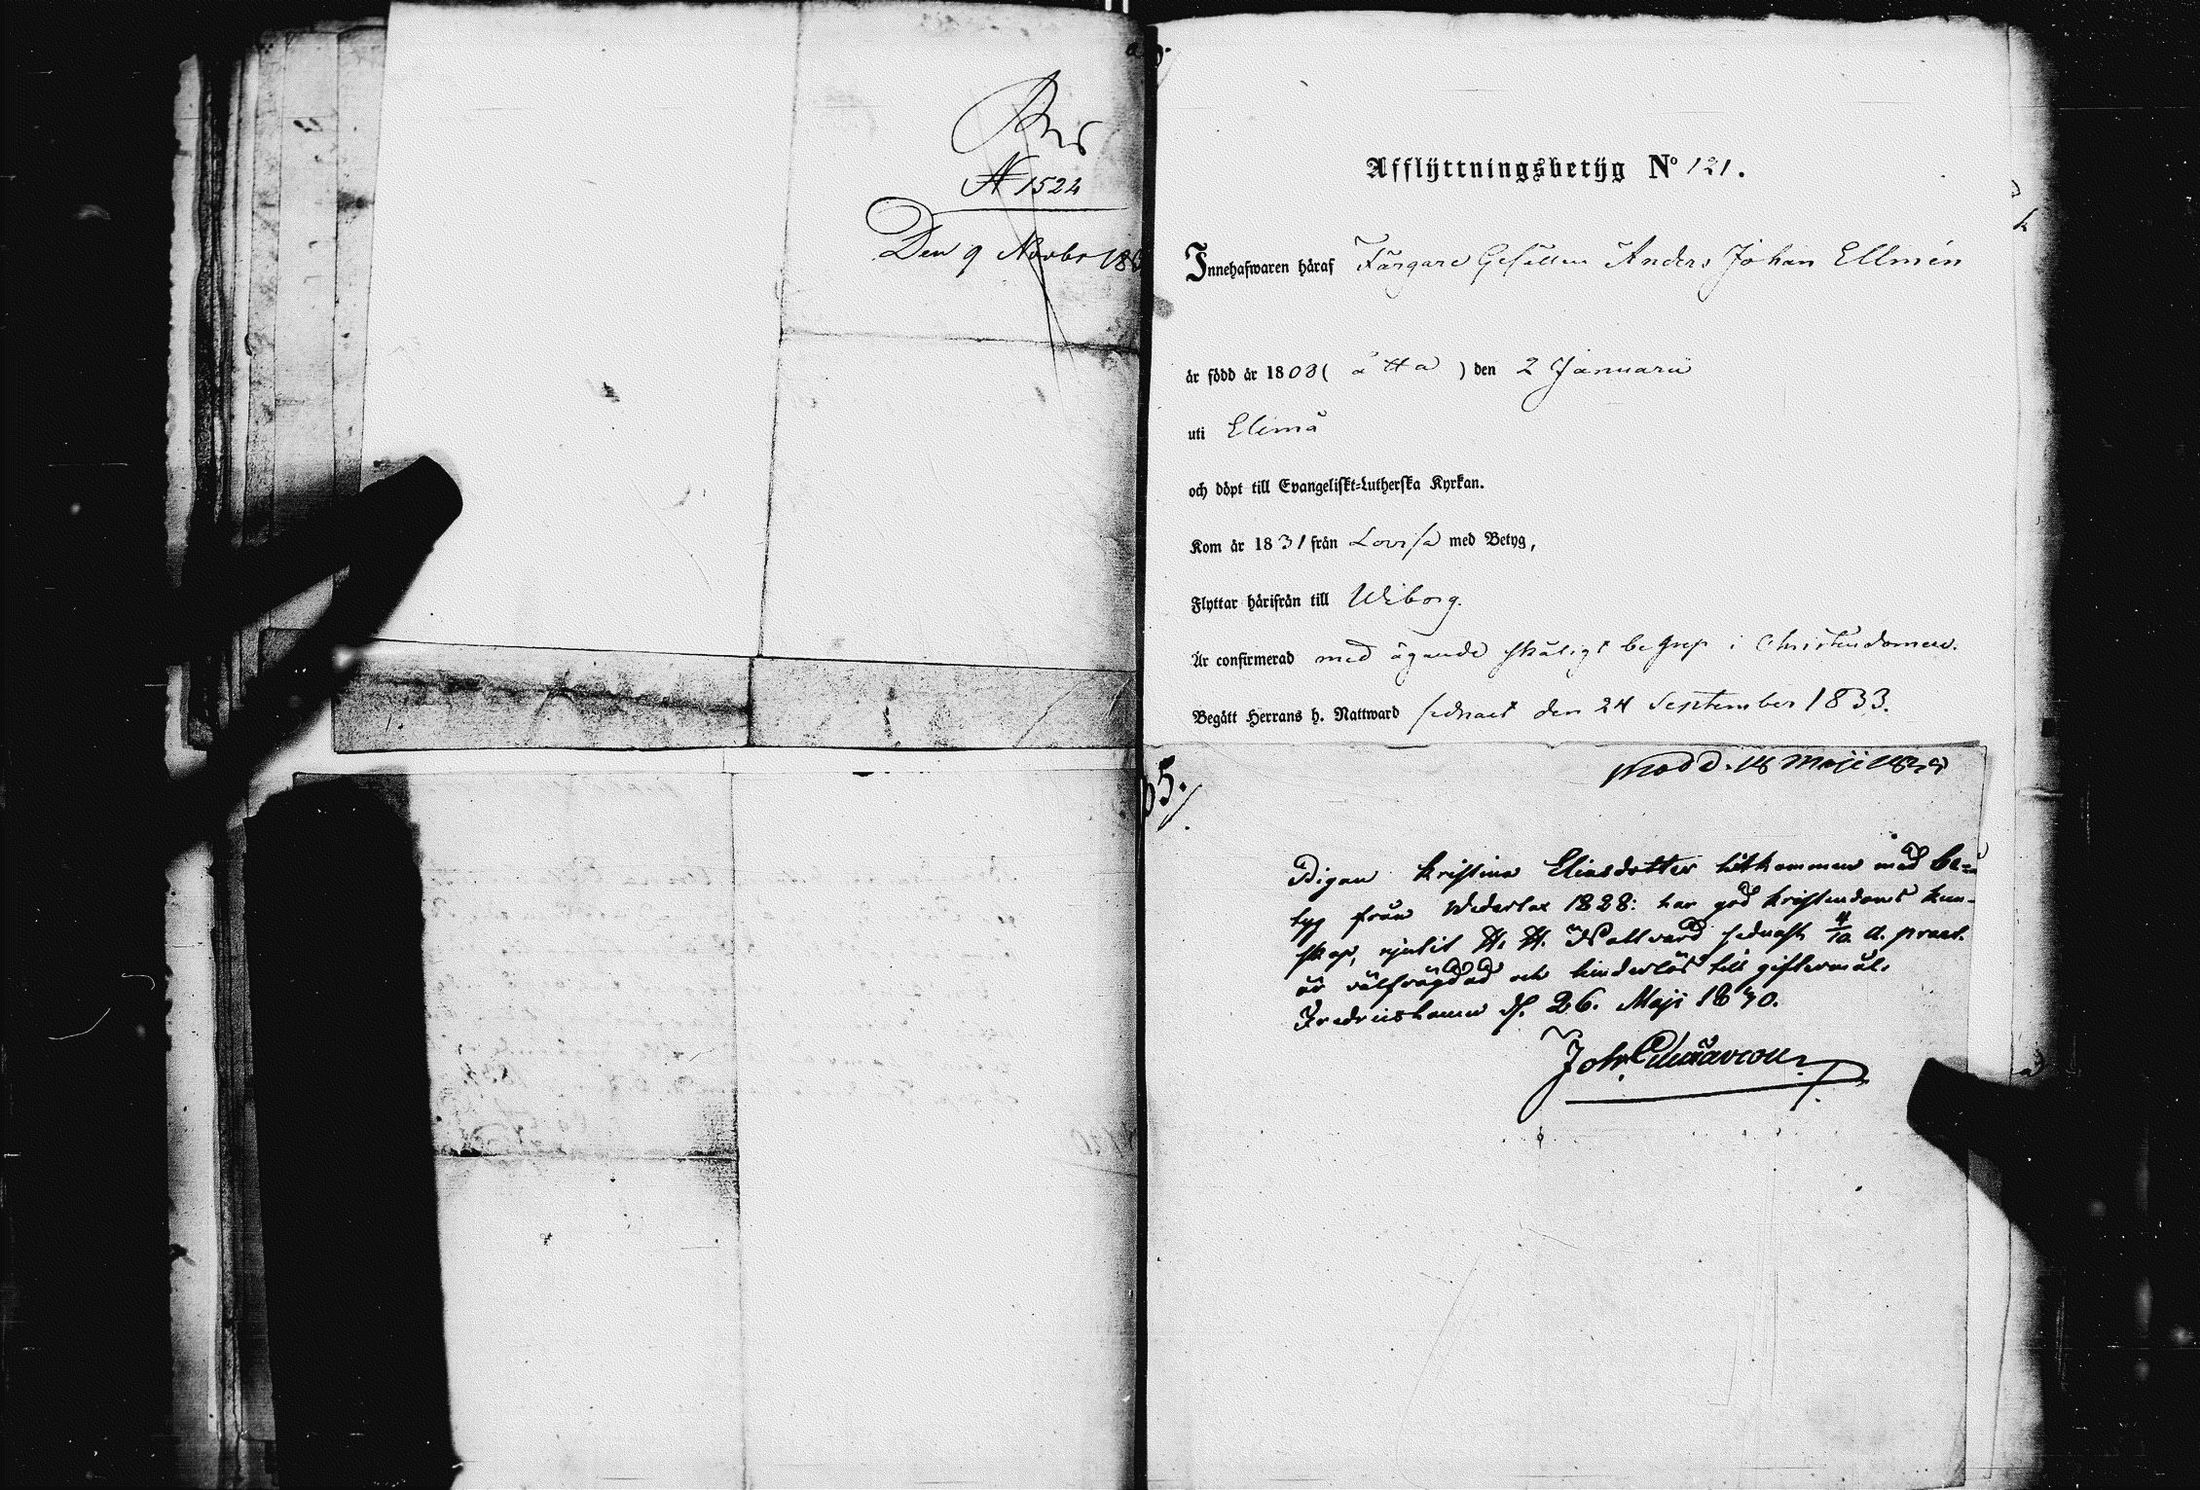 № 1524
Den 9 Novbr 18
Afflyttningsbetyg No 121.
Innehafwaren håraf Färgare Gesällen Anders Johan Ellmén
år född år 1808 ( åtta ) den 2 Januarii
uti Elimä
och döpt till Evangeliskt-Lutherska Kyrkan.
Kom år 1831 från Lovisa med Betyg,
Flyttar hårifrån till Wiborg.
Är confirmerad med ägande skäligt begrep i Christendomen.
Begått Herrans h. Nattward sednast den 24 September 1833.
65.
d. 18 Maji
Pigan Kristina Eliasdotter hitkommen med be-
tyg från Wederlax 1828: har god kristendoms kun-
skap, njutit H. H. Nattvard sednast 4/10 a. praet.
är välfrägdad och hinderlös till giftermål.
Fredricshamn d. 26. Maji 1830.
Joh.